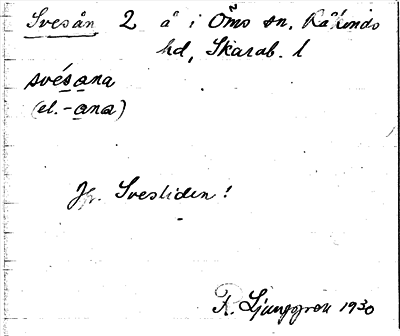 Svesån 2 å i Öms sn, Kåkinds
hd, Skarab. l
svésana
(el. -ana)
Jfr. Svesliden!
R. Ljunggren 1930